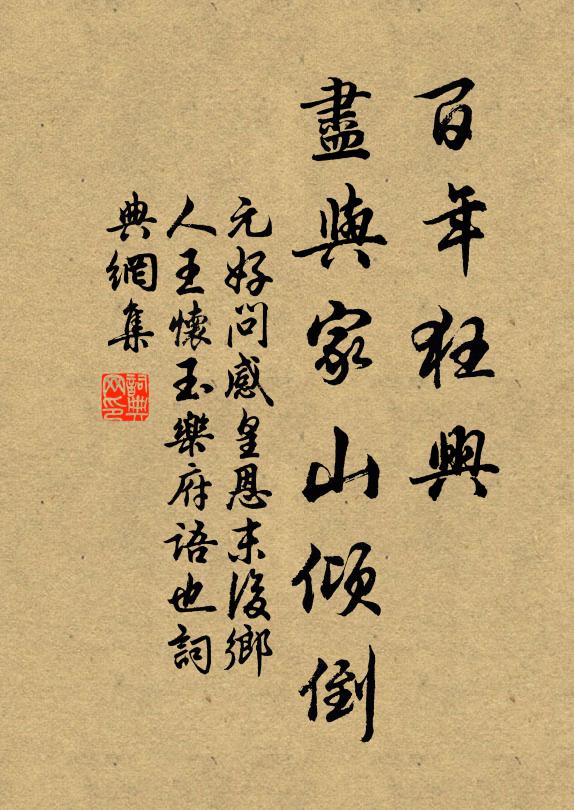 百年狂興
盡與家山傾倒
元好問感皇恩末後鄉
人王懷玉樂府語也詞
典網集
詞典
网印